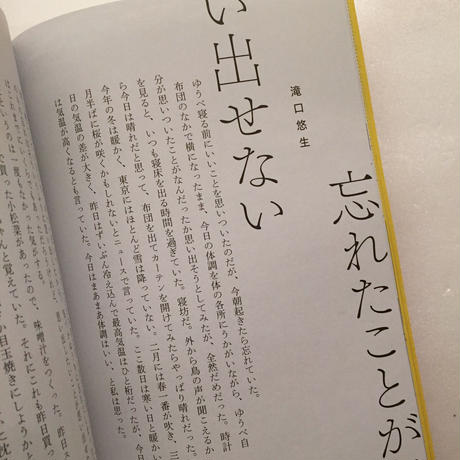 忘れたことが
い出せない
滝口悠生
ゆうべ寝る前にいいことを思いついたのだが、今朝起きたら忘れていた。
布団のなかで横になったまま、今日の体調を体の各所にうかがいながら、ゆうべ自
分が思いついたことがなんだったか思い出そうとしてみたが、全然だめだった。時計
を見ると、いつも寝床を出る時間を過ぎていた。寝坊だ。外から鳥の声が聞こえるか
ら今日は晴れだと思って、布団を出てカーテンを開けてみたらやっぱり晴れだった。
今年の冬は暖かく、東京にはほとんど雪は降っていない。二月には春一番が吹き、三
月半ばに桜が咲くかもしれないとニュースで言っていた。ここ数日は寒い日と暖かい
日の気温の差が大きく、昨日はずいぶん冷え込んで最高気温はひと桁だったが、今日
は気温が高くなるとも言っていた。今日はまあまあ体調はいい、と私は思った。
買った小松菜があったので、味噌汁をつくった。昨日ス
ちゃんと覚えていた。それにこれも昨日買っ
目玉焼きにしようかと